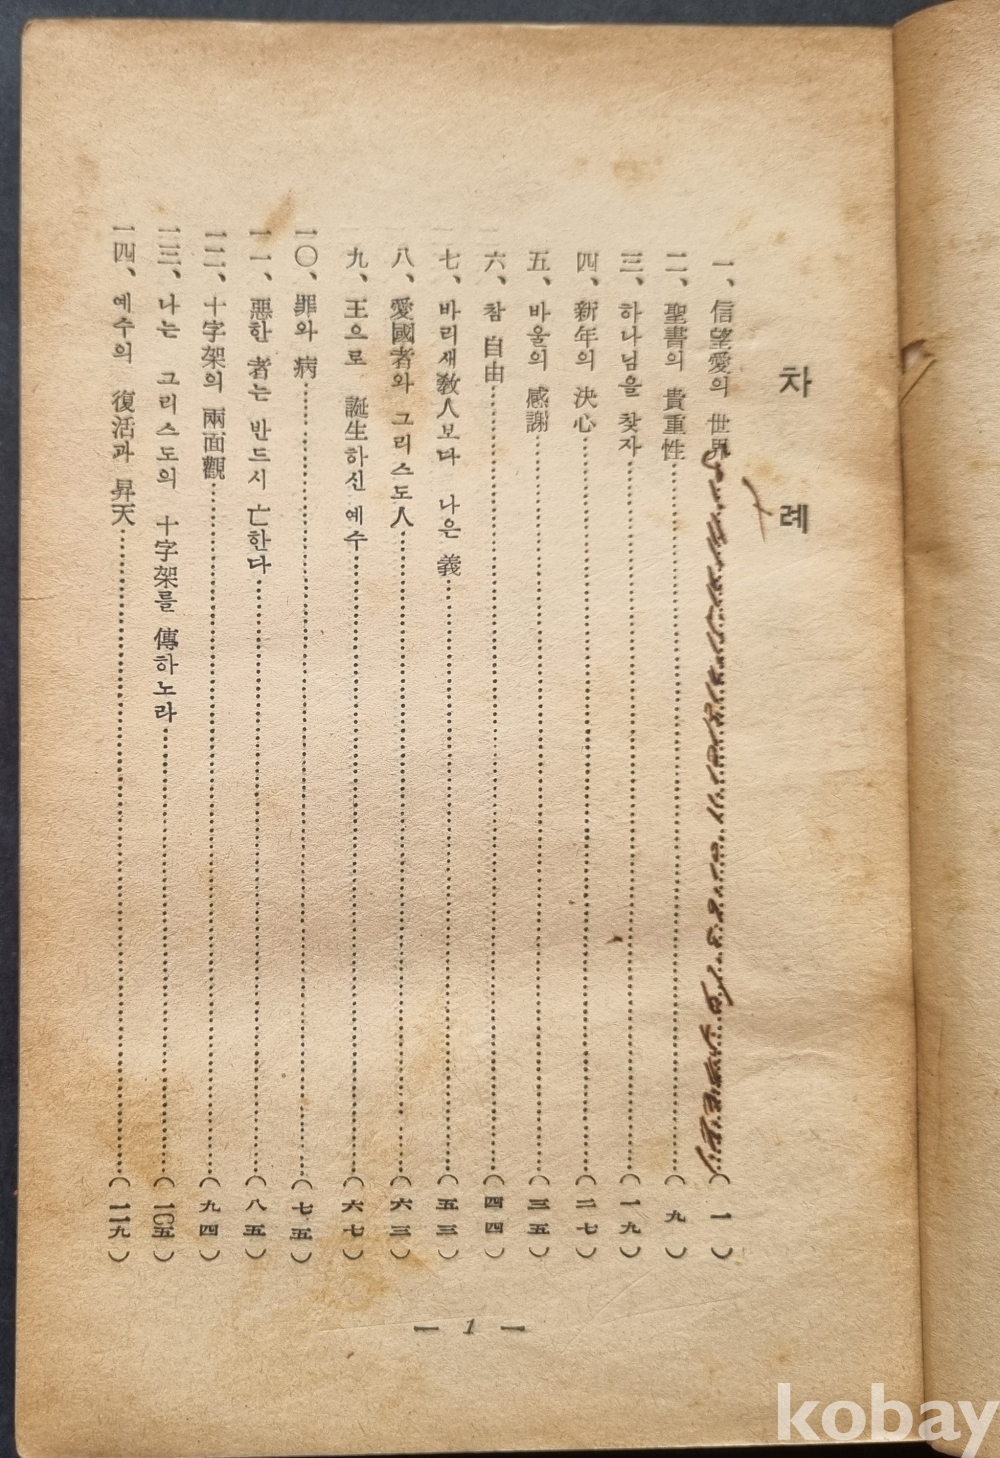 차 례
一、信望愛의 世界 (一)
二、聖書의 貴重性 (九)
三、하나님을 찾자 (一九)
四、新年의 決心 (二七)
五、바울의 感謝 (三五)
六、참 自由 (四四)
七、바리새敎人보다 나은 義 (五三)
八、愛國者와 그리스도人 (六三)
九、王으로 誕生하신 예수 (六七)
一〇、罪와 病 (七五)
一一、惡한 者는 반드시 亡한다 (八五)
一二、十字架의 兩面觀 (九四)
一三、나는 그리스도의 十字架를 傳하노라 (一〇五)
一四、예수의 復活과 昇天 (一一九)
— 1 —
kobay